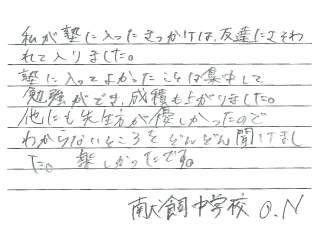 私が塾に入ったきっかけは、友達にさそわ
れて入りました。
塾に入ってよかったことは集中して
勉強ができ、成積も上がりました。
他にも先生方が優しかったので
わからないところをどんどん聞けまし
た。楽しかったです。
南犬飼中学校 O.N